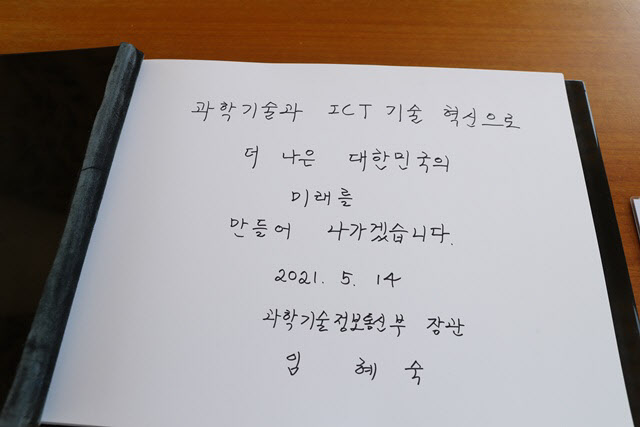 과학기술과 ICT 기술 혁신으로
더 나은 대한민국의
미래를
만들어 나가겠습니다.
2021. 5. 14
과학기술정보통신부 장관
임 혜 숙